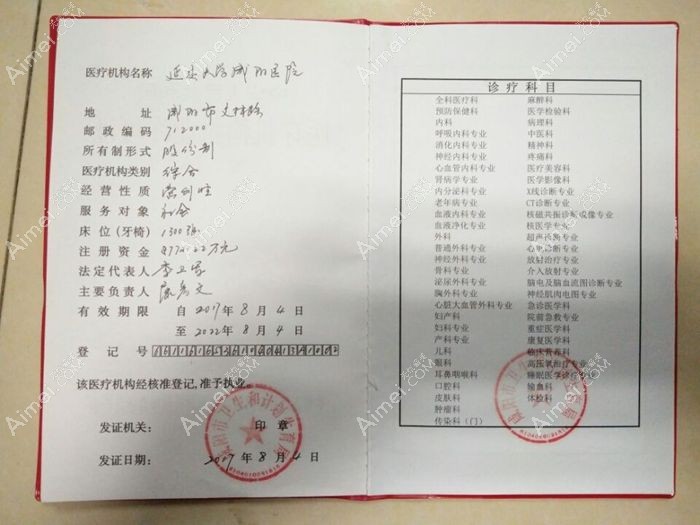 医疗机构名称 延安大学咸阳医院
地 址 咸阳市文林路
邮政编码 712000
所有制形式 股份制
医疗机构类别 综合
经营性质 营利性
服务对象 社会
床位(牙椅) 1300张
注册资金 万元
法定代表人
主要负责人
有效期限 自 2017年 8月 4日
至 2022年 8月 4日
登记号
该医疗机构经核准登记,准予执业。
发证机关: 印章
发证日期: 2017年 8月 4日
咸阳市卫生和计划生育局
诊疗科目
全科医疗科 麻醉科
预防保健科 医学检验科
内科 病理科
呼吸内科专业 中医科
消化内科专业 精神科
神经内科专业 疼痛科
心血管内科专业 医疗美容科
肾病学专业 医学影像科
内分泌科专业 X线诊断专业
老年病专业 CT诊断专业
血液内科专业 核磁共振诊断成像专业
血液净化专业 核医学专业
外科 超声诊断专业
普通外科专业 心电诊断专业
神经外科专业 放射治疗专业
骨科专业 介入放射专业
泌尿外科专业 脑电及脑血流图诊断专业
胸外科专业 神经肌肉电图专业
心脏大血管外科专业 急诊医学科
妇产科 院前急救专业
妇科专业 重症医学科
产科专业 康复医学科
儿科 临床营养科
眼科 高压氧治疗专业
耳鼻咽喉科 睡眠医学诊疗专业
口腔科 输血科
皮肤科 体检科
肿瘤科
传染科(门)
Aimei.com